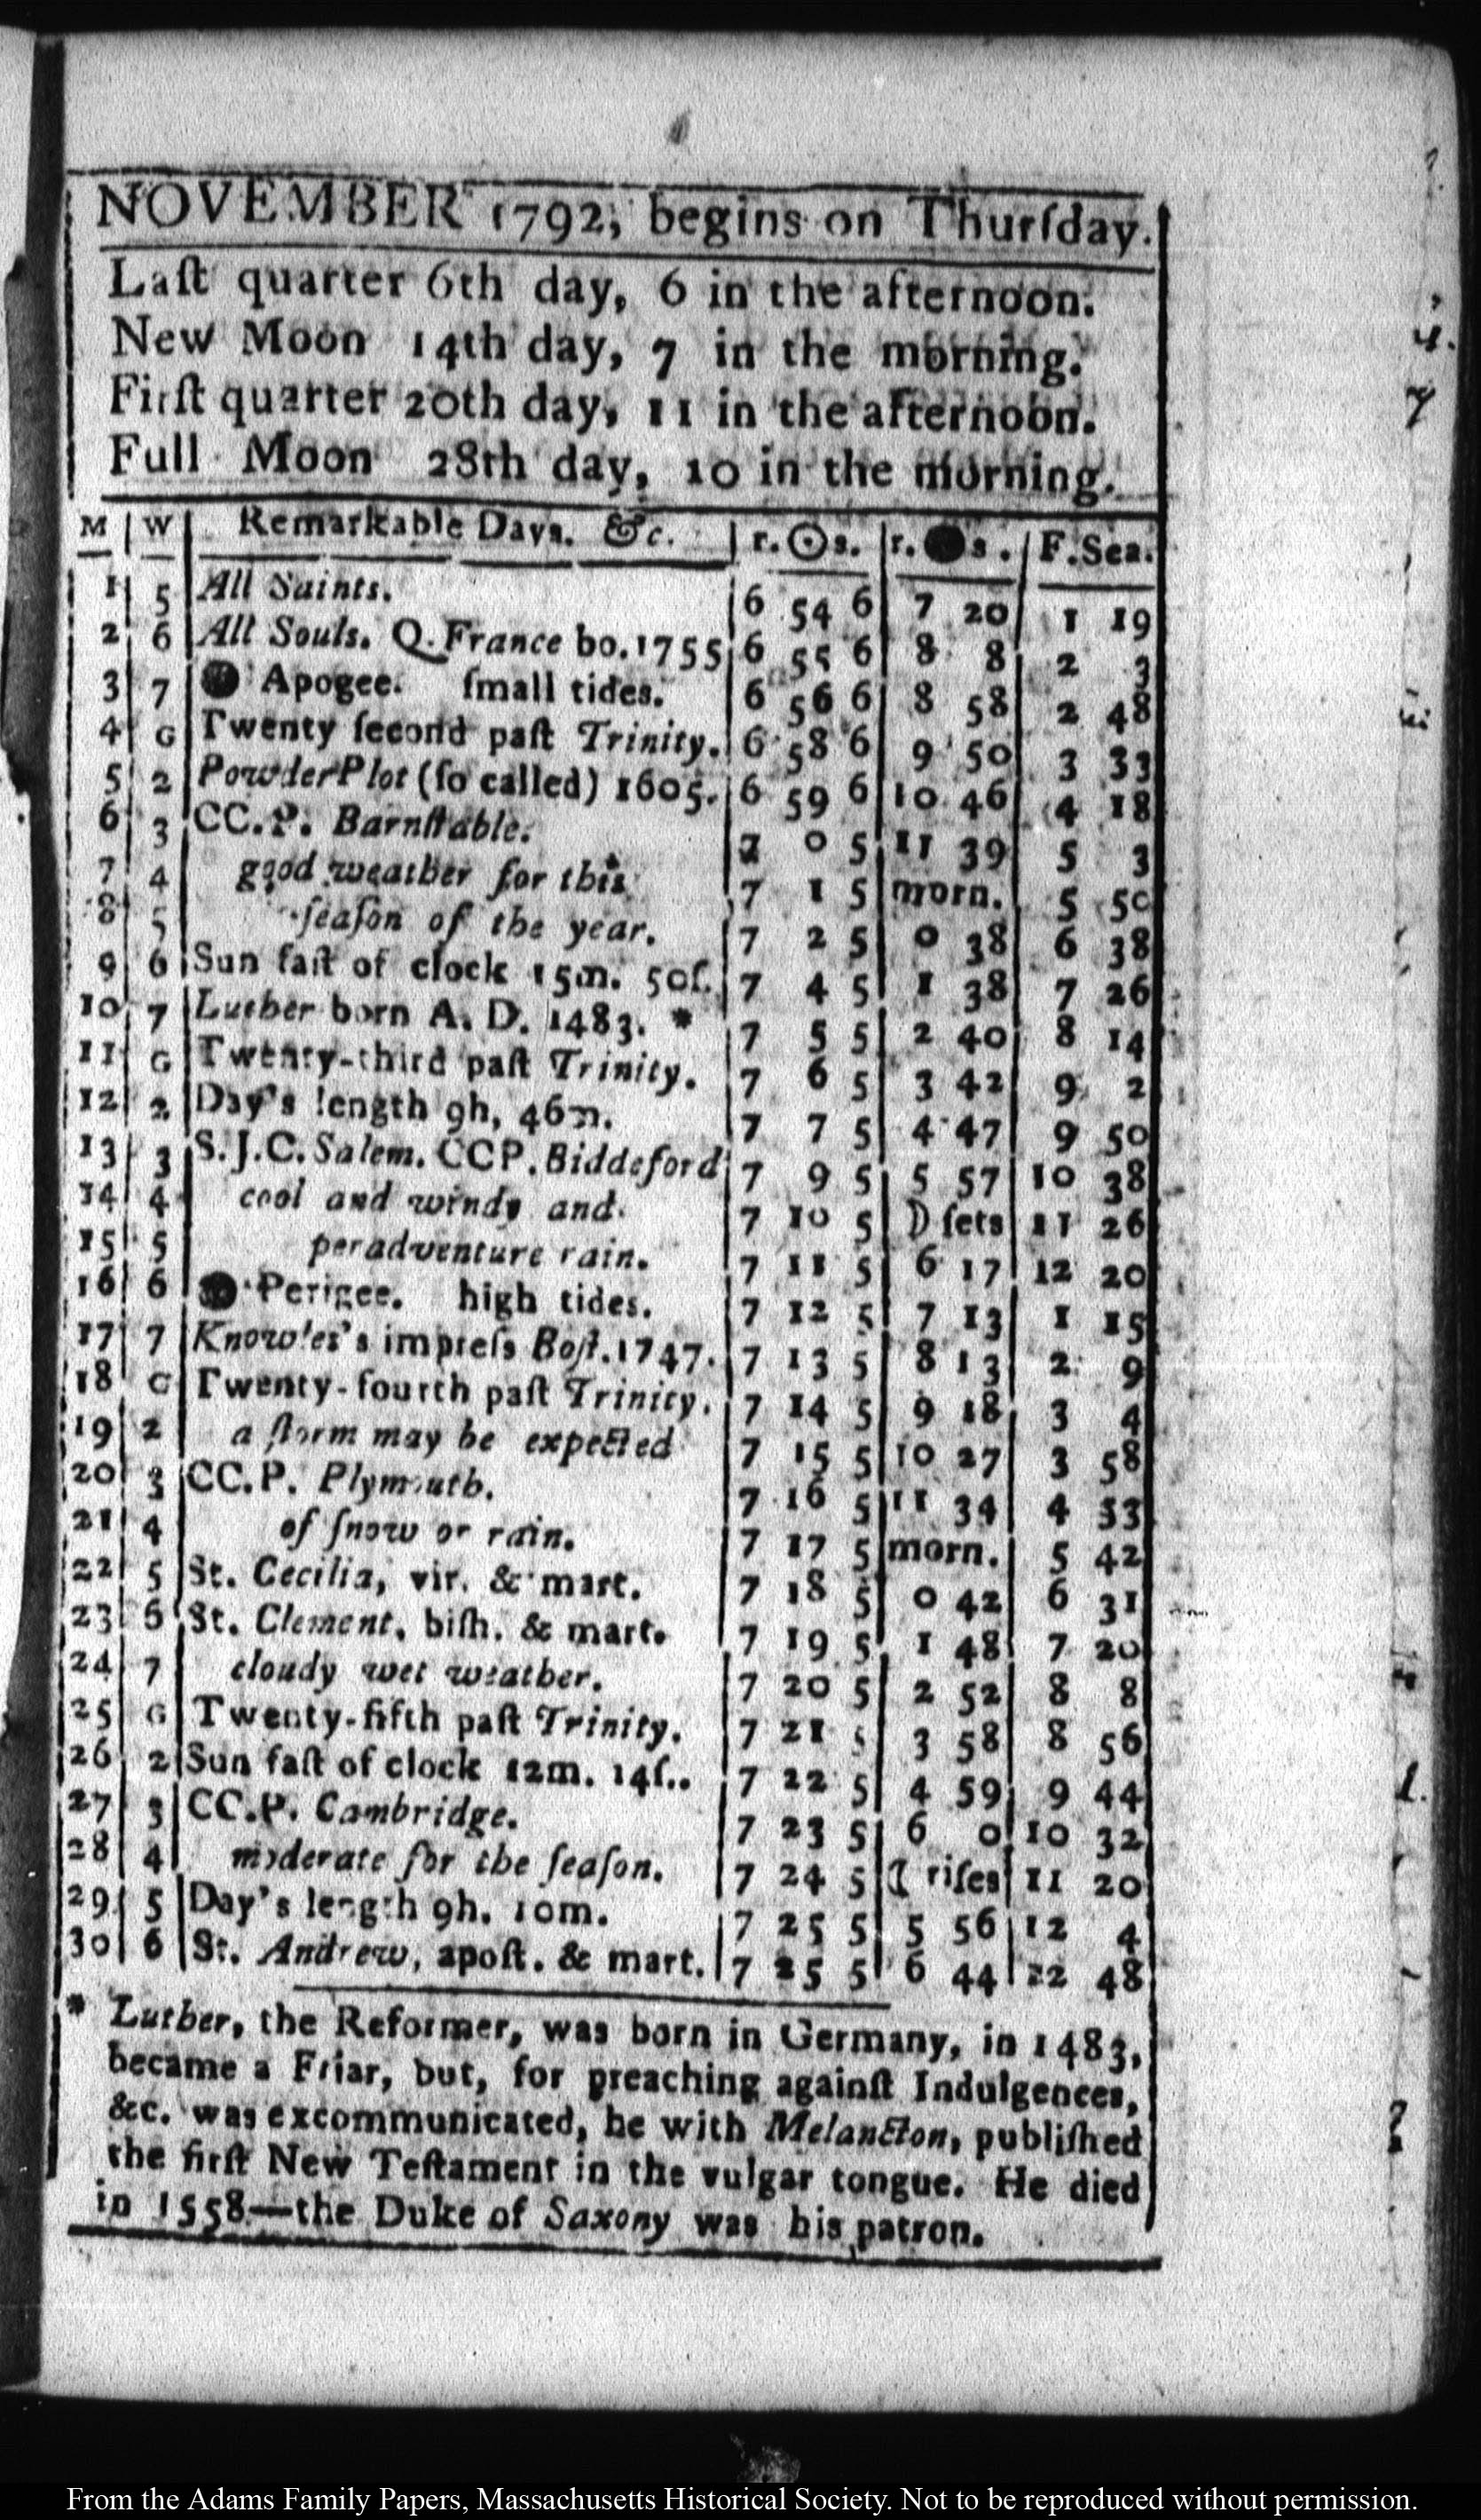 NOVEMBER 1792, begins on Thurſday.
Laſt quarter 6th day, 6 in the afternoon.
New Moon 14th day, 7 in the morning.
Firſt quarter 20th day, 11 in the afternoon.
Full Moon 28th day, 10 in the morning.
M | W | Remarkable Days. &c. | r.☉s. | r.●s. | F.Sea.
1 5 All Saints. 6 54 6 7 20 1 19
2 6 All Souls. Q. France bo. 1755 6 55 6 8 8 2 3
3 7 ● Apogee. ſmall tides. 6 56 6 8 58 2 48
4 G Twenty ſecond paſt Trinity. 6 58 6 9 50 3 33
5 2 PowderPlot (ſo called) 1605. 6 59 6 10 46 4 18
6 3 CC.P. Barnſtable. 7 0 5 11 39 5 3
7 4 good weather for this 7 1 5 morn. 5 50
8 5 ſeaſon of the year. 7 2 5 0 38 6 38
9 6 Sun faſt of clock 15m. 50ſ. 7 4 5 1 38 7 26
10 7 Luther born A. D. 1483. * 7 5 5 2 40 8 14
11 G Twenty-third paſt Trinity. 7 6 5 3 42 9 2
12 2 Day's length 9h, 46m. 7 7 5 4 47 9 50
13 3 S.J.C. Salem. CCP. Biddeford 7 9 5 5 57 10 38
14 4 cool and windy and 7 10 5 ☽ ſets 11 26
15 5 peradventure rain. 7 11 5 6 17 12 20
16 6 ● Perigee. high tides. 7 12 5 7 13 1 15
17 7 Knowles's impreſs Boſt. 1747. 7 13 5 8 13 2 9
18 G Twenty-fourth paſt Trinity. 7 14 5 9 18 3 4
19 2 a ſtorm may be expected 7 15 5 10 27 3 58
20 3 CC.P. Plymouth. 7 16 5 11 34 4 53
21 4 of ſnow or rain. 7 17 5 morn. 5 42
22 5 St. Cecilia, vir. & mart. 7 18 5 0 42 6 31
23 6 St. Clement, biſh. & mart. 7 19 5 1 48 7 20
24 7 cloudy wet weather. 7 20 5 2 52 8 8
25 G Twenty-fifth paſt Trinity. 7 21 5 3 58 8 56
26 2 Sun faſt of clock 12m. 14ſ.. 7 22 5 4 59 9 44
27 3 CC.P. Cambridge. 7 23 5 6 0 10 32
28 4 moderate for the ſeaſon. 7 24 5 ☾ riſes 11 20
29 5 Day's length 9h. 10m. 7 25 5 5 56 12 4
30 6 St. Andrew, apoſt. & mart. 7 25 5 6 44 12 48
* Luther, the Reformer, was born in Germany, in 1483,
became a Friar, but, for preaching againſt Indulgences,
&c. was excommunicated, he with Melancton, publiſhed
the firſt New Teſtament in the vulgar tongue. He died
in 1558—the Duke of Saxony was his patron.
From the Adams Family Papers, Massachusetts Historical Society. Not to be reproduced without permission.